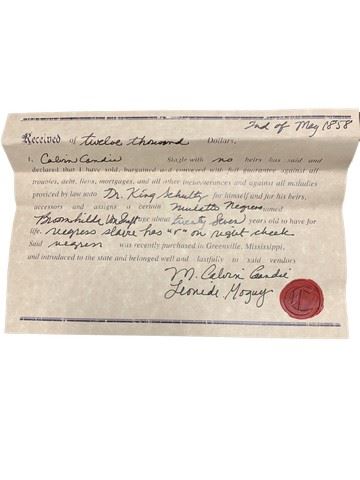 2nd of May 1858
Received of twelve thousand Dollars,
I, Calvin Candie Single with no heirs has said and
declared that I have sold, bargained and conveyed with full guarantee against all
troubles, debt, liens, mortgages, and all other incumverances and against all maladies
provided by law unto Dr. King Schultz for himself and for his heirs,
accessors and assigns a certain mulatto Negress named
Broomhilda Von Shaft age about twenty seven years old to have for
life. negress slave has "r" on right cheek
Said negress was recently purchased in Greenville, Mississippi,
and introduced to the state and belonged well and lastfully to said vendors
M. Calvin Candie
Leonide Moguy
C